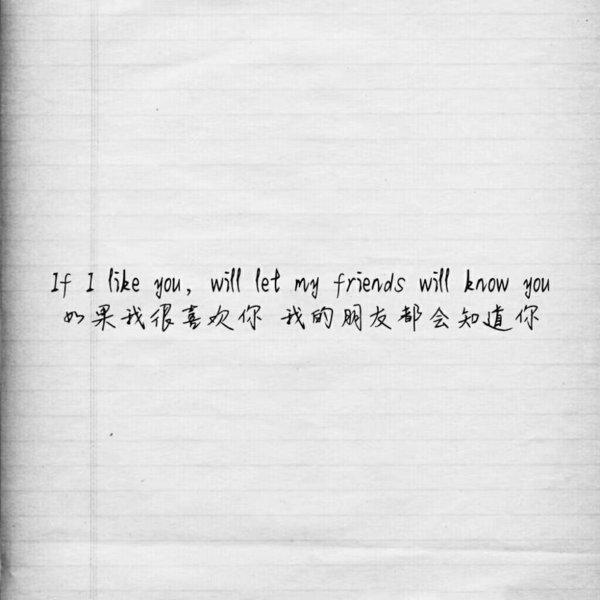 If I like you, will let my friends will know you
如果我很喜欢你 我的朋友都会知道你